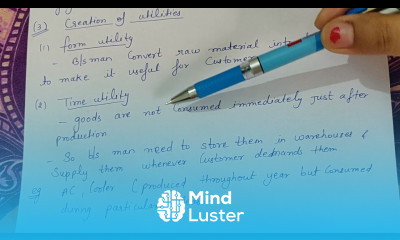 (3) Creation of utilities
(1) form utility
- B/s man Convert raw material int
to make it useful for Customer
(2) Time utility
- goods are not Consumed immediately just after
production
- So b/s man need to store them in warehouses &
Supply them whenever Customer demands them
eg AC, Cooler (produced throughout year but Consumed
during particular
Mind
Luster